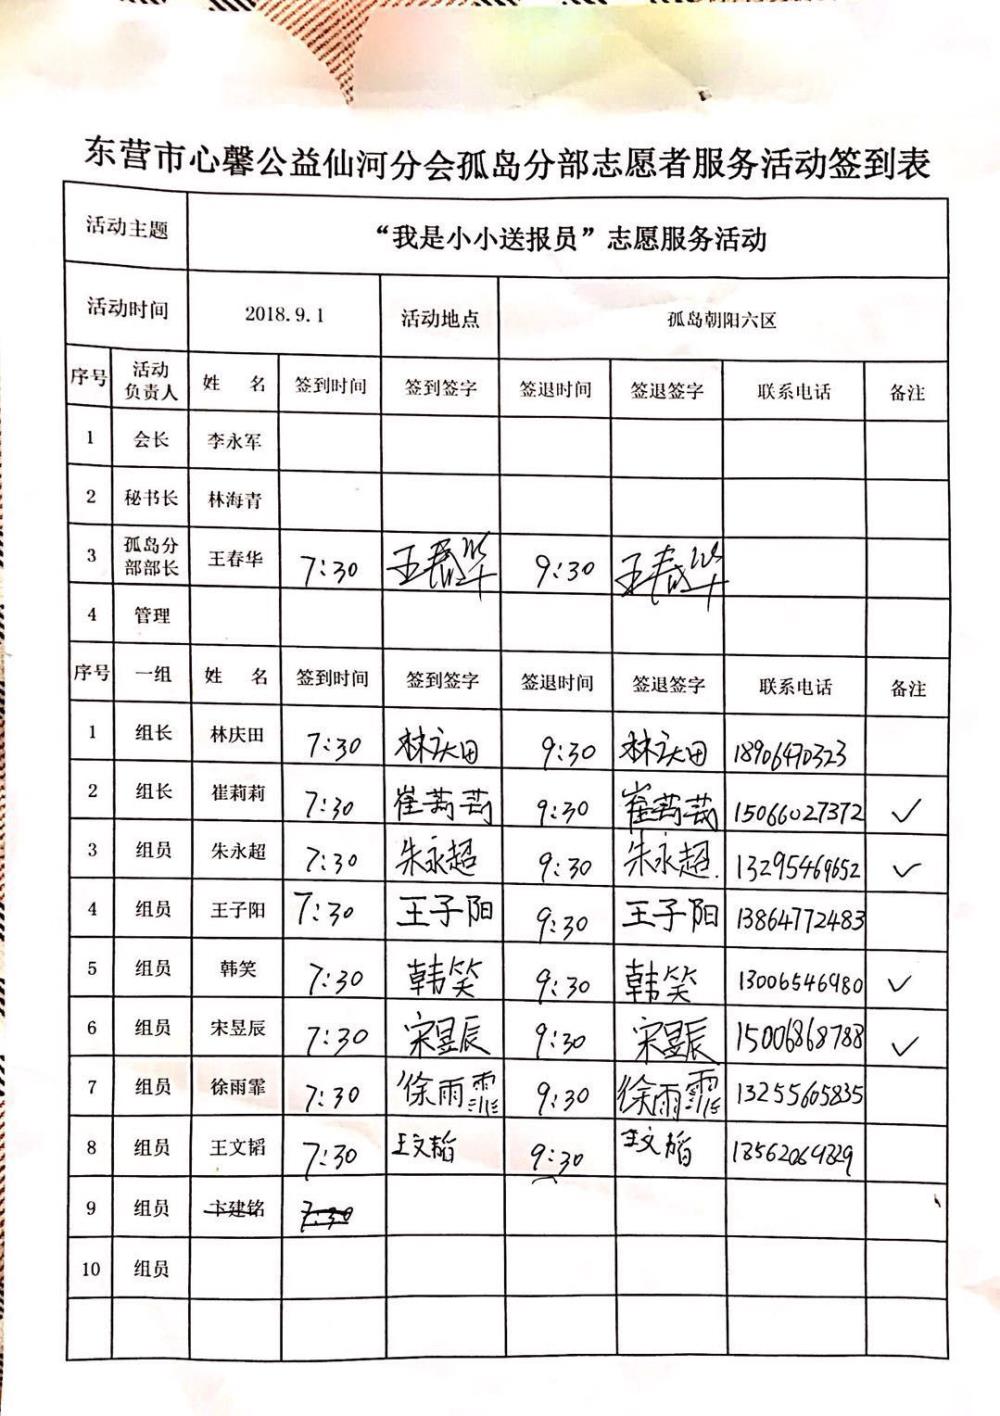 东营市心馨公益仙河分会孤岛分部志愿者服务活动签到表
活动主题 “我是小小送报员”志愿服务活动
活动时间 2018.9.1 活动地点 孤岛朝阳六区
序号 活动负责人 姓 名 签到时间 签到签字 签退时间 签退签字 联系电话 备注
1 会长 李永军
2 秘书长 林海青
3 孤岛分部部长 王春华 7:30 王春华 9:30 王春华
4 管理
序号 一组 姓 名 签到时间 签到签字 签退时间 签退签字 联系电话 备注
1 组长 林庆田 7:30 林庆田 9:30 林庆田 18906470323
2 组长 崔莉莉 7:30 崔莉莉 9:30 崔莉莉 15066027372 ✓
3 组员 朱永超 7:30 朱永超 9:30 朱永超. 13295469652 ✓
4 组员 王子阳 7:30 王子阳 9:30 王子阳 13864772483
5 组员 韩笑 7:30 韩笑 9:30 韩笑 13006546980 ✓
6 组员 宋昱辰 7:30 宋昱辰 9:30 宋昱辰 15006868788 ✓
7 组员 徐雨霏 7:30 徐雨霏 9:30 徐雨霏 13255605835
8 组员 王文韬 7:30 王文韬 9:30 王文韬
9 组员 卞建铭 7:30
10 组员